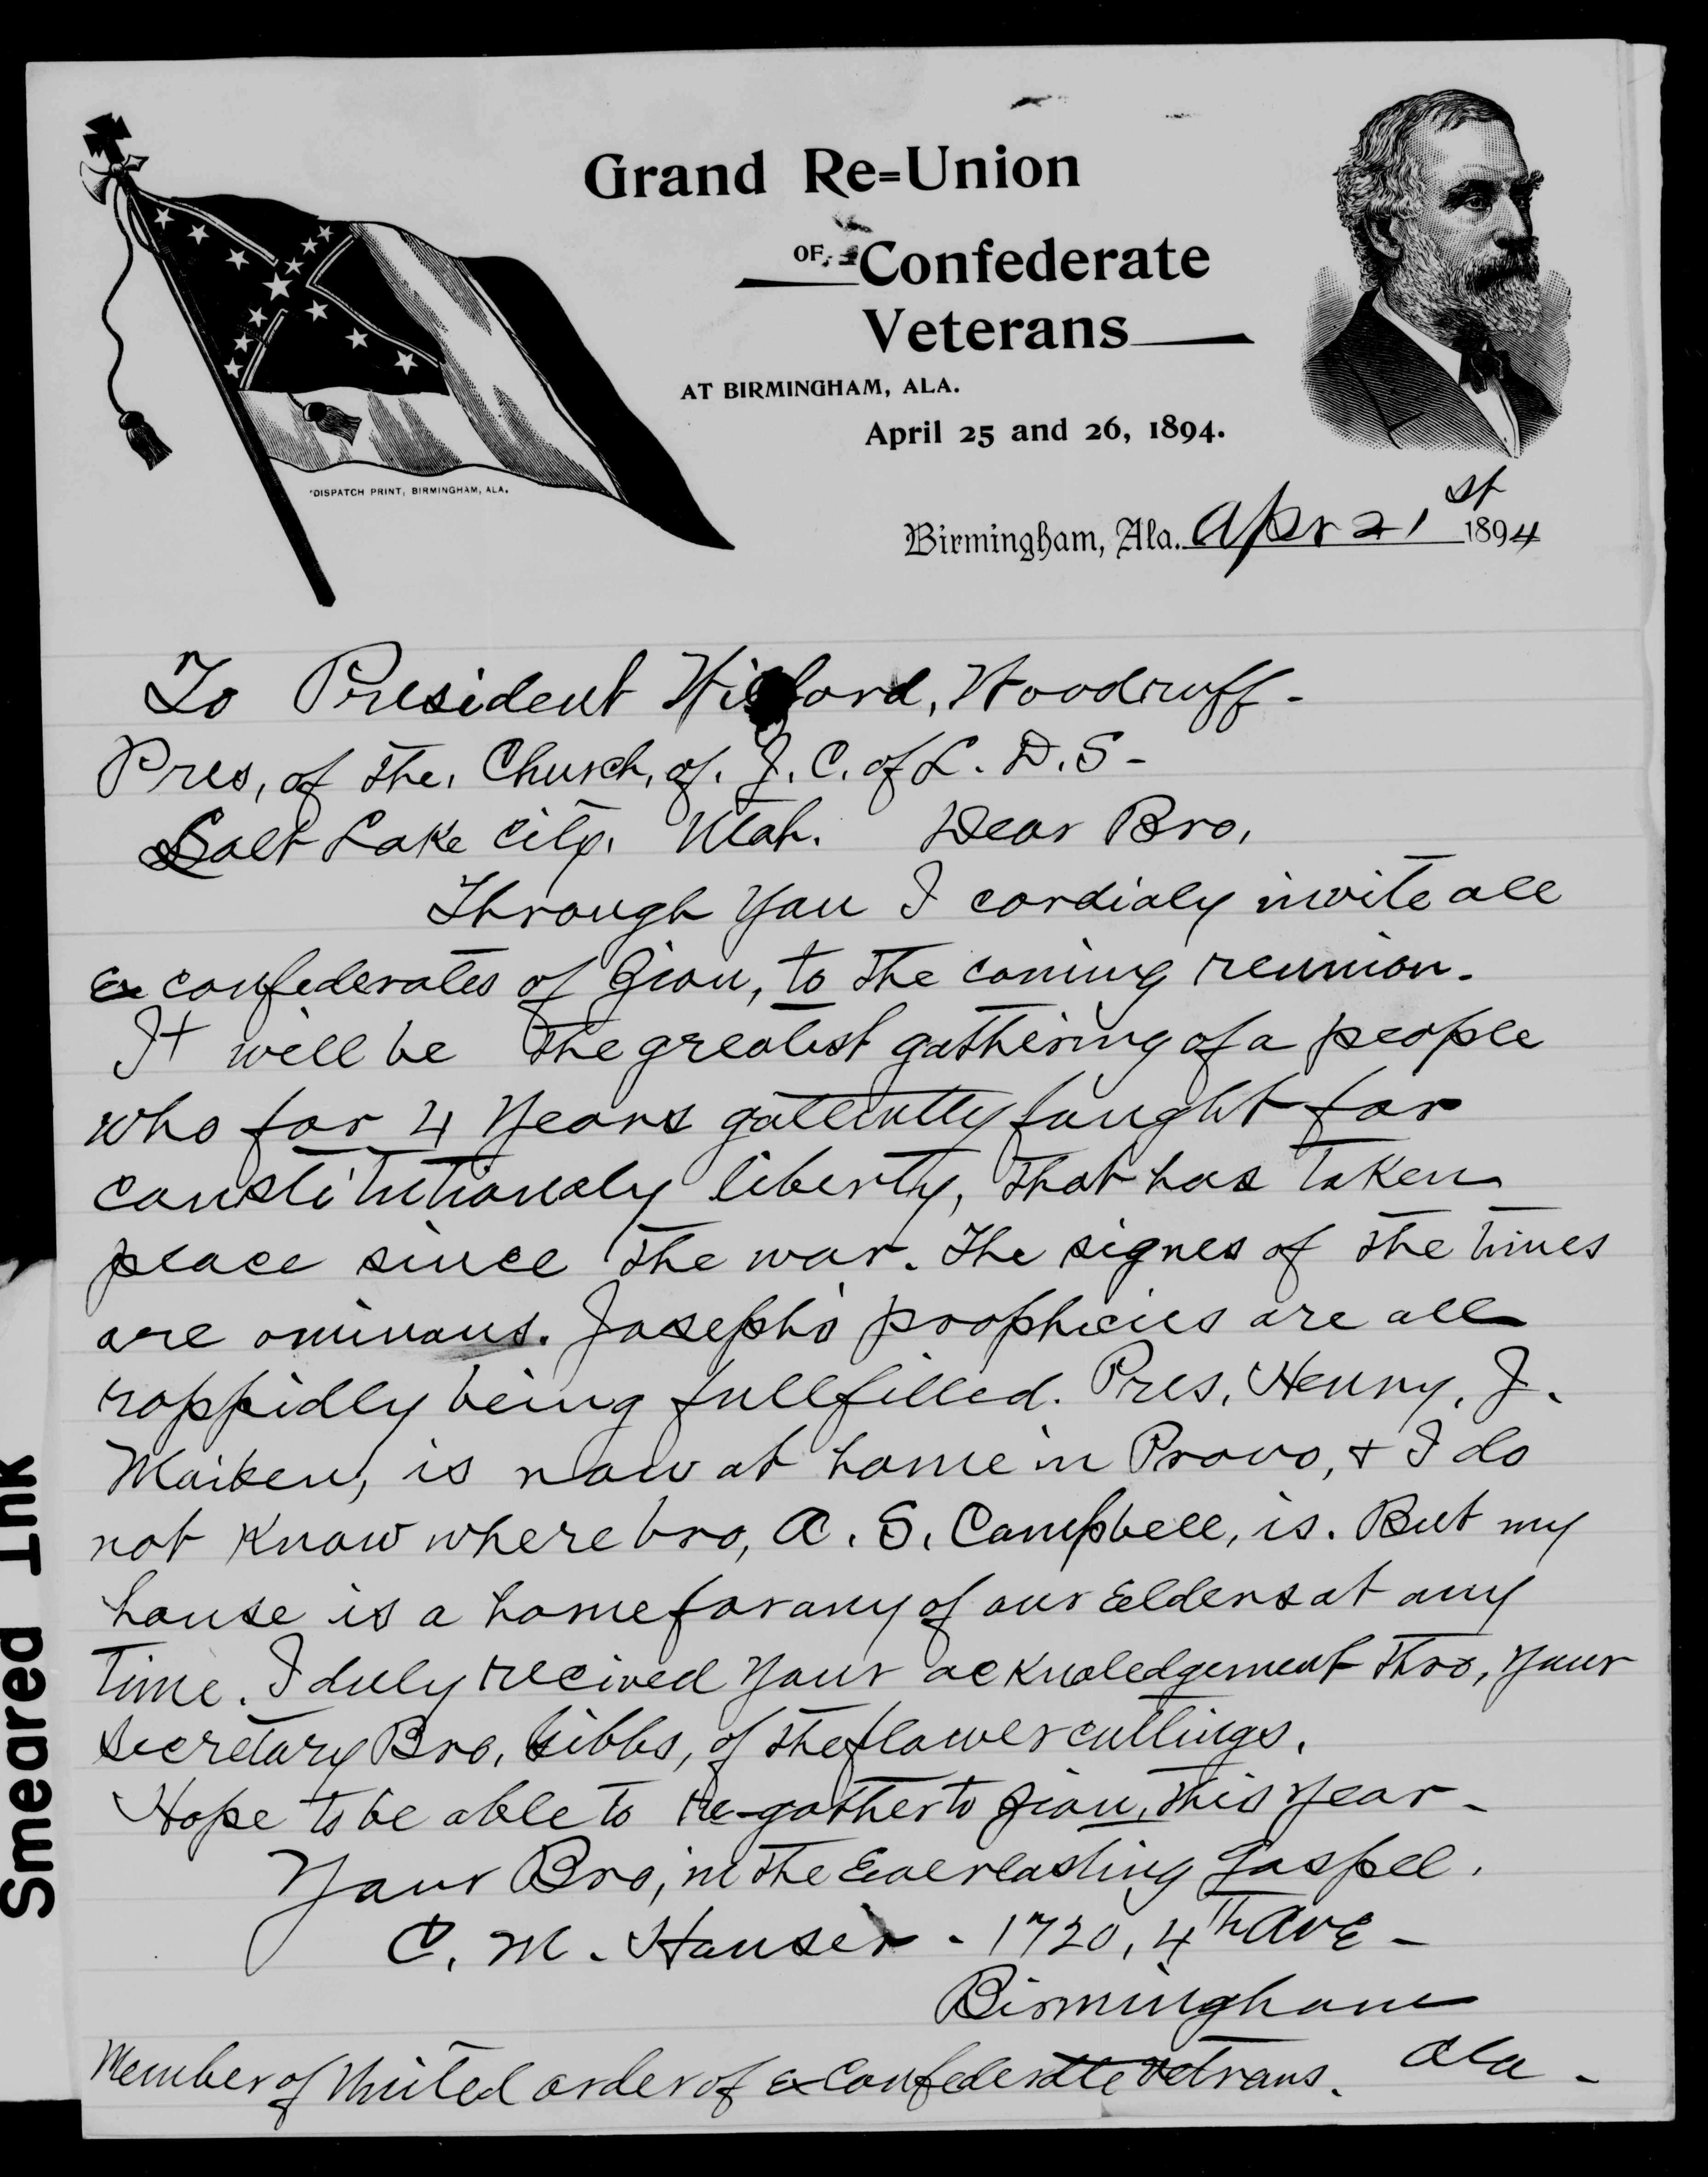 Grand Re=Union
OF Confederate
Veterans
AT BIRMINGHAM, ALA.
April 25 and 26, 1894.
DISPATCH PRINT, BIRMINGHAM, ALA.
Birmingham, Ala. Apr 21st 1894
To President Wilford, Woodruff-
Pres, of the, Church, of. J. C. of L. D. S-
Salt Lake City, Utah. Dear Bro,
Through you I cordialy invite all
ex confederates of Zion, to the coming reunion.
It will be the greatest gathering of a people
who for 4 years gallently fought for
constitutionaly liberty, that has taken
place since the war. The signes of the times
are ominous. Joseph's prophicies are all
rappidly being fullfilled. Pres, Henny, J.
Maiben, is now at home in Provo, & I do
not know where bro, A. S. Campbell, is. But my
house is a home for any of our Elders at any
time. I duly recived your acknoledgement thro, your
secretary Bro, Gibbs, of the flower cuttings.
Hope to be able to re-gather to Zion, this year-
Your Bro, in the Everlasting Gospel.
C. M. Hauser - 1720, 4th Ave-
Birmingham
Ala-
Member of United order of ex Confederate vetrans.
Smeared Ink